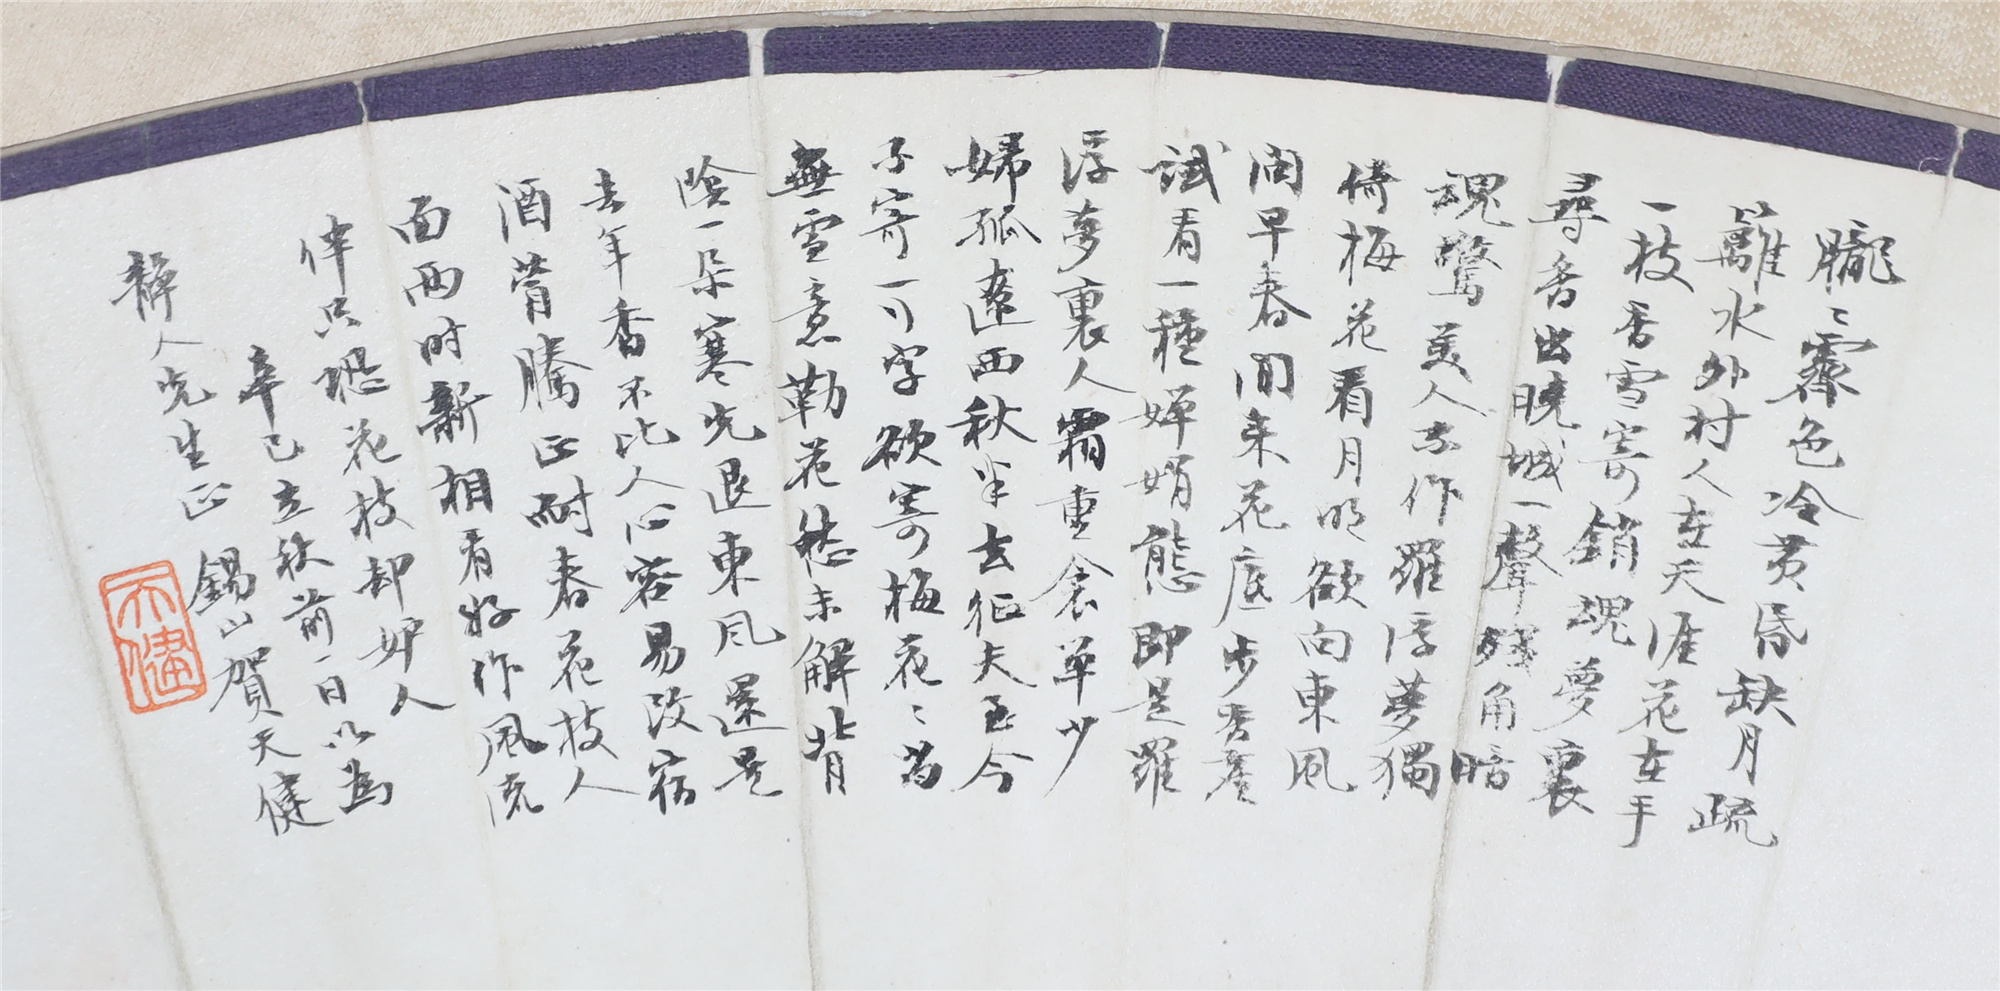 朧〻霽色冷黃昏缺月疏
籬水外村人在天涯花在手
一枝香雪寄銷魂夢裏
尋香出曉城一聲殘角暗
魂驚美人不作羅浮夢獨
倚梅花看月明欲向東風
問早春閒來花底步香塵
試看一種嬋娟態即是羅
浮夢裏人霜重衾單少
婦孤遼西秋半去征夫至今
不寄一行字欲寄梅花〻為
無雪意勒花愁未解背
陰一朵寒光退東風還是
去年香不比人心容易改宿
酒瞢騰正耐春花枝人
面兩時新相看好作風流
伴只恐花枝卻妒人
辛巳立秋前一日以為
稺人先生正 錫山賀天健
天健